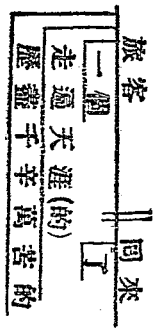 旅客 回來
一個 了
走過天涯(的)
歷盡千辛萬苦的